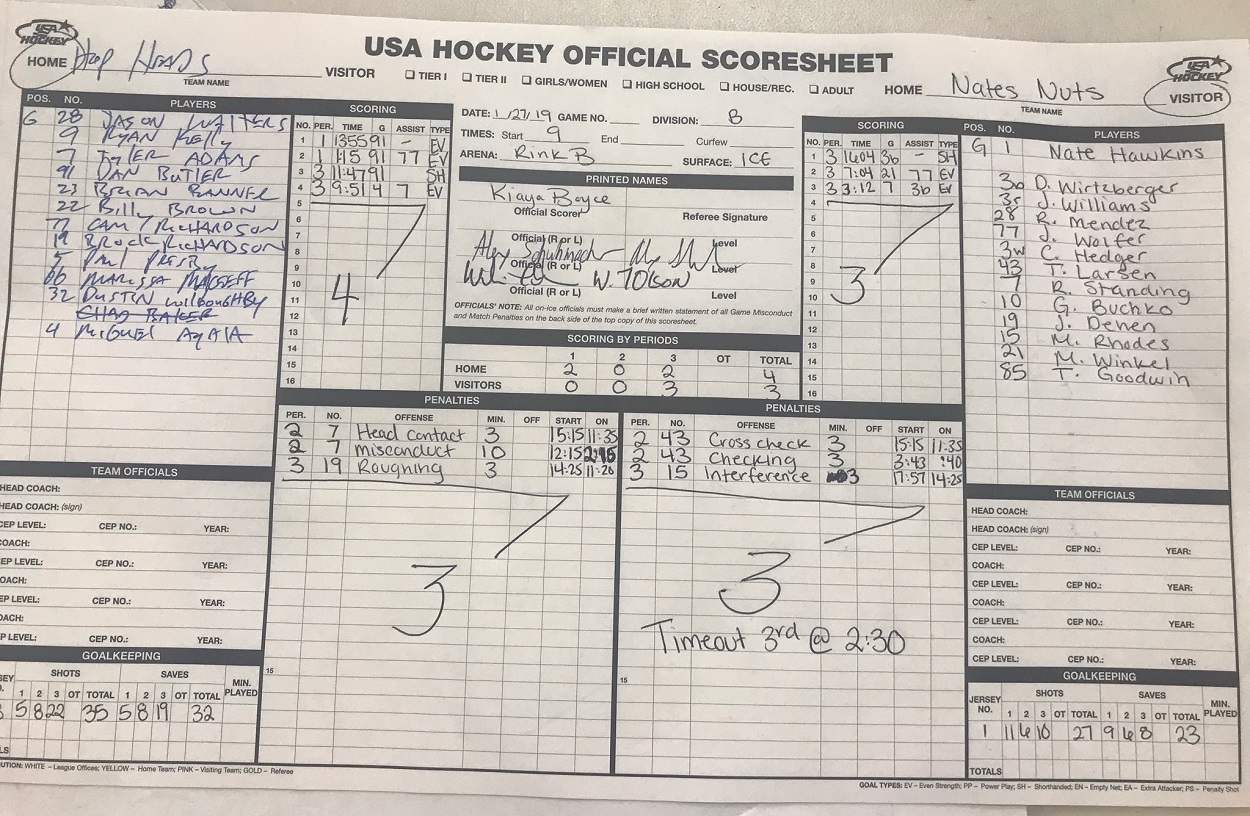 USA HOCKEY OFFICIAL SCORESHEET
USA HOCKEY
HOME Hop Heads
TEAM NAME
VISITOR
☐ TIER I ☐ TIER II ☐ GIRLS/WOMEN ☐ HIGH SCHOOL ☐ HOUSE/REC. ☐ ADULT
HOME Nates Nuts
TEAM NAME
USA HOCKEY
VISITOR
POS. NO. PLAYERS
G 28 JASON WALTERS
9 RYAN Kelly
7 TyLER ADAMS
91 DAN BUTLER
23 BRIAN BANNER
22 Billy BROWN
77 CAM RICHARDSON
19 BROCK RICHARDSON
5 PAUL
66 MARISSA
32 DUSTIN WILLOUGHBY
CHAD BAKER
4 MIGUEL AyALA
SCORING
NO. PER. TIME G ASSIST TYPE
1 1 13:55 91 - EV
2 1 1:15 91 77 EV
3 3 11:47 91 SH
4 3 9:51 4 7 EV
5
6
7
8
9
10
11
12
13
14
15
16
4
DATE: 1/27/19 GAME NO. DIVISION: B
TIMES: Start 9 End Curfew
ARENA: Rink B SURFACE: ICE
PRINTED NAMES
Kiaya Boyce
Official Scorer Referee Signature
Alex Schuhmach
Official (R or L) Level
W. TOlson
Official (R or L) Level
Official (R or L) Level
OFFICIALS' NOTE: All on-ice officials must make a brief written statement of all Game Misconduct
and Match Penalties on the back side of the top copy of this scoresheet.
SCORING BY PERIODS
1 2 3 OT TOTAL
HOME 2 0 2 4
VISITORS 0 0 3 3
SCORING
NO. PER. TIME G ASSIST TYPE
1 3 16:04 36 - SH
2 3 7:04 21 77 EV
3 3 3:12 7 36 EV
4
5
6
7
8
9
10
11
12
13
14
15
16
3
POS. NO. PLAYERS
G 1 Nate Hawkins
30 D. Wirtzberger
35 J. Williams
28 R. Mendez
77 J. Wolfer
3w C. Hedger
43 T. Larsen
7 R. Standing
10 G. Buchko
19 J. Denen
15 M. Rhodes
21 M. Winkel
85 T. Goodwin
PENALTIES
PER. NO. OFFENSE MIN. OFF START ON
2 7 Head contact 3 15:15 11:35
2 7 misconduct 10 12:15 2:45
3 19 Roughing 3 14:25 11:20
3
15
PENALTIES
PER. NO. OFFENSE MIN. OFF START ON
2 43 Cross check 3 15:15 11:35
2 43 Checking 3 3:43 :40
3 15 Interference 3 17:57 14:25
3
Timeout 3rd @ 2:30
15
TEAM OFFICIALS
HEAD COACH:
HEAD COACH: (sign)
EP LEVEL: CEP NO.: YEAR:
OACH:
EP LEVEL: CEP NO.: YEAR:
OACH:
EP LEVEL: CEP NO.: YEAR:
OACH:
P LEVEL: CEP NO.: YEAR:
GOALKEEPING
SHOTS SAVES MIN. PLAYED
1 2 3 OT TOTAL 1 2 3 OT TOTAL
5 8 22 35 5 8 19 32
TEAM OFFICIALS
HEAD COACH:
HEAD COACH: (sign)
CEP LEVEL: CEP NO.: YEAR:
COACH:
CEP LEVEL: CEP NO.: YEAR:
COACH:
CEP LEVEL: CEP NO.: YEAR:
COACH:
CEP LEVEL: CEP NO.: YEAR:
GOALKEEPING
JERSEY NO. SHOTS SAVES MIN. PLAYED
1 2 3 OT TOTAL 1 2 3 OT TOTAL
1 11 6 10 27 9 6 8 23
TOTALS
UTION: WHITE – League Offices; YELLOW – Home Team; PINK – Visiting Team; GOLD – Referee
GOAL TYPES: EV – Even Strength; PP – Power Play; SH – Shorthanded; EN – Empty Net; EA – Extra Attacker; PS – Penalty Shot